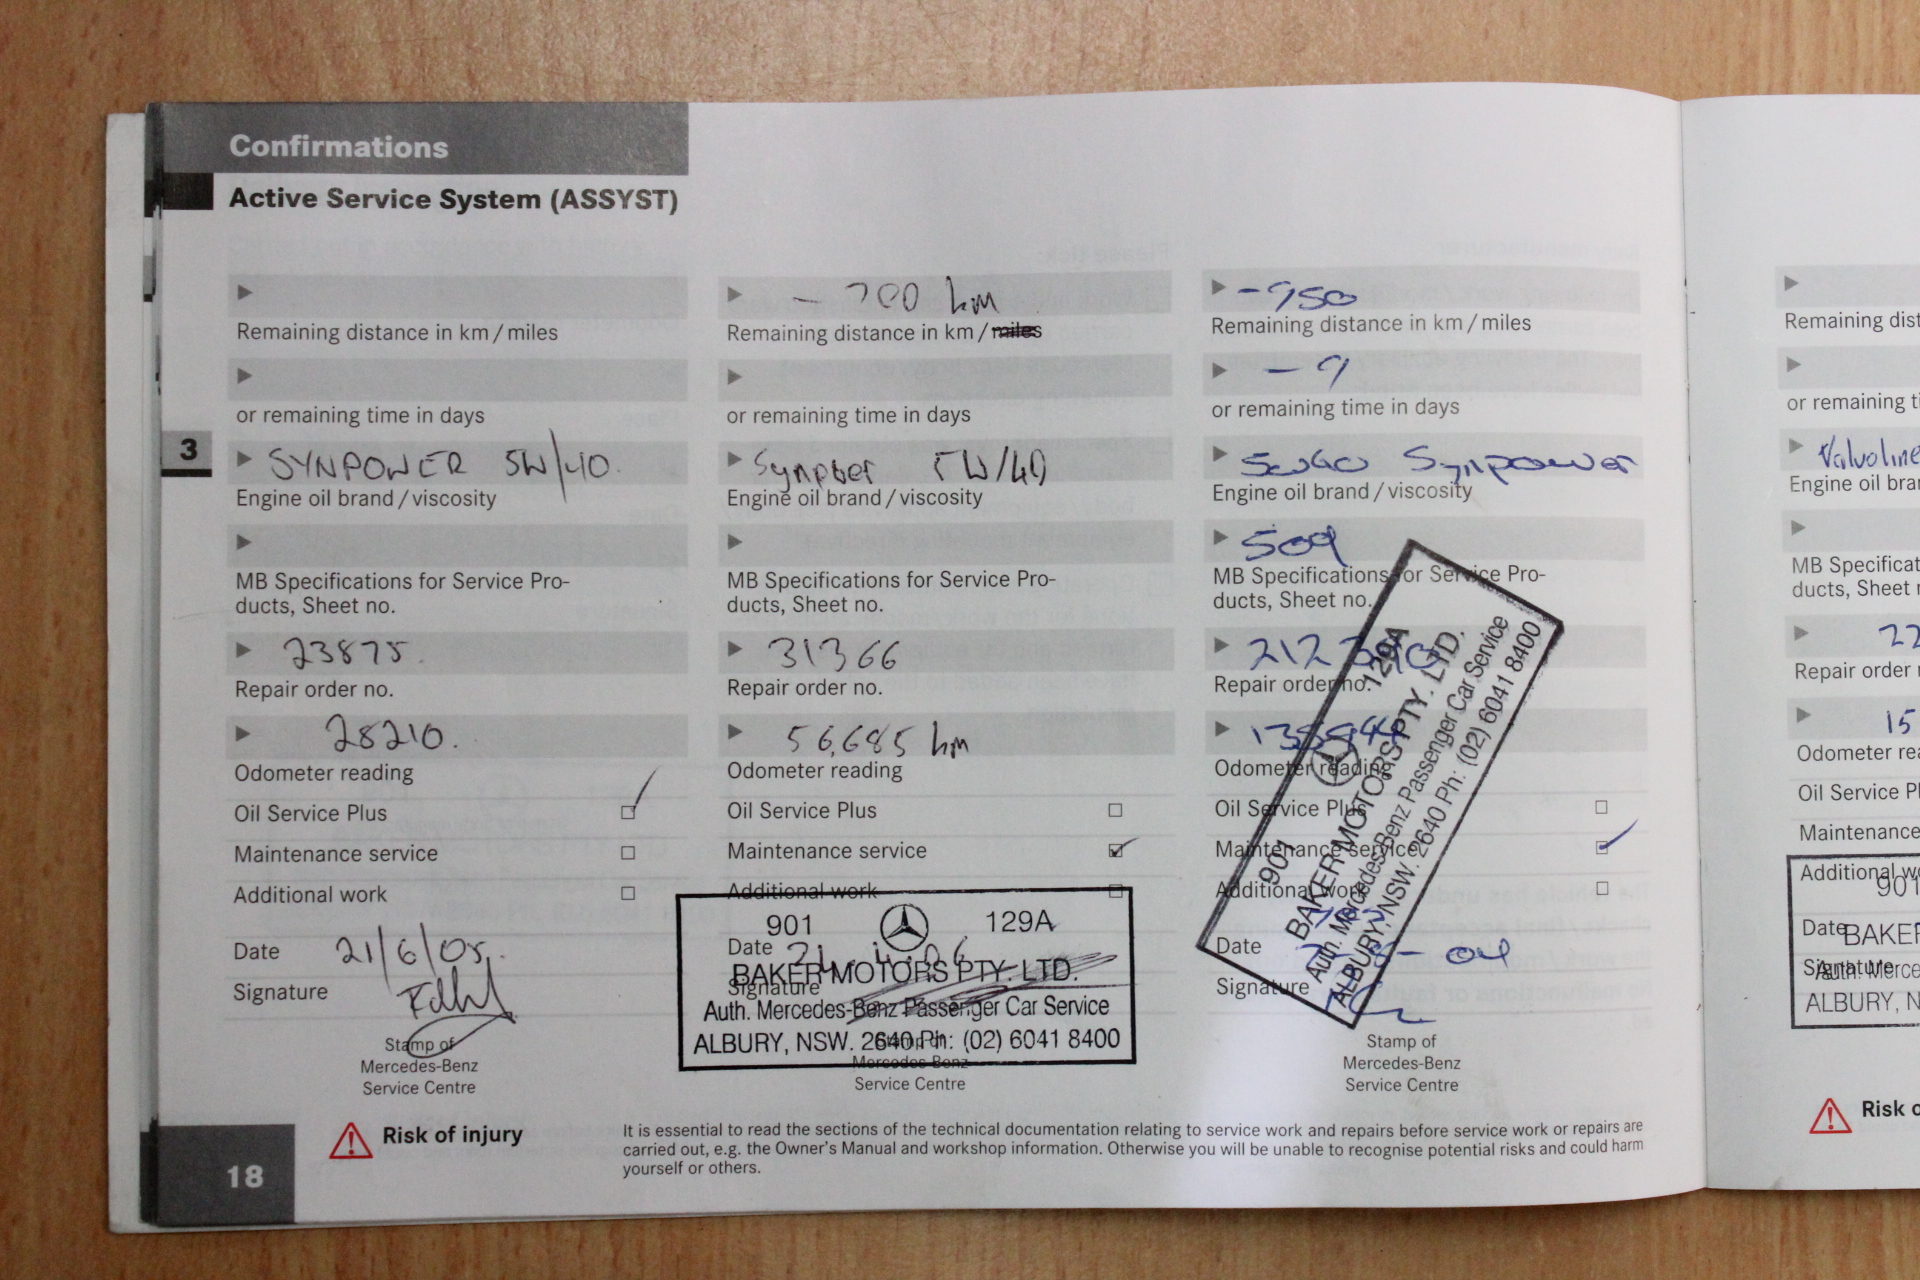 Confirmations
Active Service System (ASSYST)
3
Remaining distance in km / miles
or remaining time in days
SYNPOWER 5W/40.
Engine oil brand / viscosity
MB Specifications for Service Pro-
ducts, Sheet no.
23875.
Repair order no.
28210.
Odometer reading
Oil Service Plus
Maintenance service
Additional work
Date 21/6/05.
Signature
Stamp of
Mercedes-Benz
Service Centre
- 700 km
Remaining distance in km / miles
or remaining time in days
5W/40
Engine oil brand / viscosity
MB Specifications for Service Pro-
ducts, Sheet no.
31366
Repair order no.
56,685 km
Odometer reading
Oil Service Plus
Maintenance service
Additional work
901 129A
Date
BAKER MOTORS PTY. LTD.
Signature
Auth. Mercedes-Benz Passenger Car Service
ALBURY, NSW. 2640 Ph: (02) 6041 8400
Stamp of
Mercedes-Benz
Service Centre
-950
Remaining distance in km / miles
- 9
or remaining time in days
5w40 Synpower
Engine oil brand / viscosity
509
MB Specifications for Service Pro-
ducts, Sheet no.
Repair order no.
Odometer reading
Oil Service Plus
Maintenance service
Additional work
Date
Signature
901 129A
BAKER MOTORS PTY. LTD.
Auth. Mercedes-Benz Passenger Car Service
ALBURY, NSW. 2640 Ph: (02) 6041 8400
Stamp of
Mercedes-Benz
Service Centre
Risk of injury
It is essential to read the sections of the technical documentation relating to service work and repairs before service work or repairs are
carried out, e.g. the Owner's Manual and workshop information. Otherwise you will be unable to recognise potential risks and could harm
yourself or others.
18
Remaining dist
or remaining ti
Valvoline
Engine oil bra
MB Specificat
ducts, Sheet n
22
Repair order
15
Odometer rea
Oil Service Pl
Maintenance
Additional wo
901
Date
BAKER
Signature
Auth. Merce
ALBURY, N
Risk o